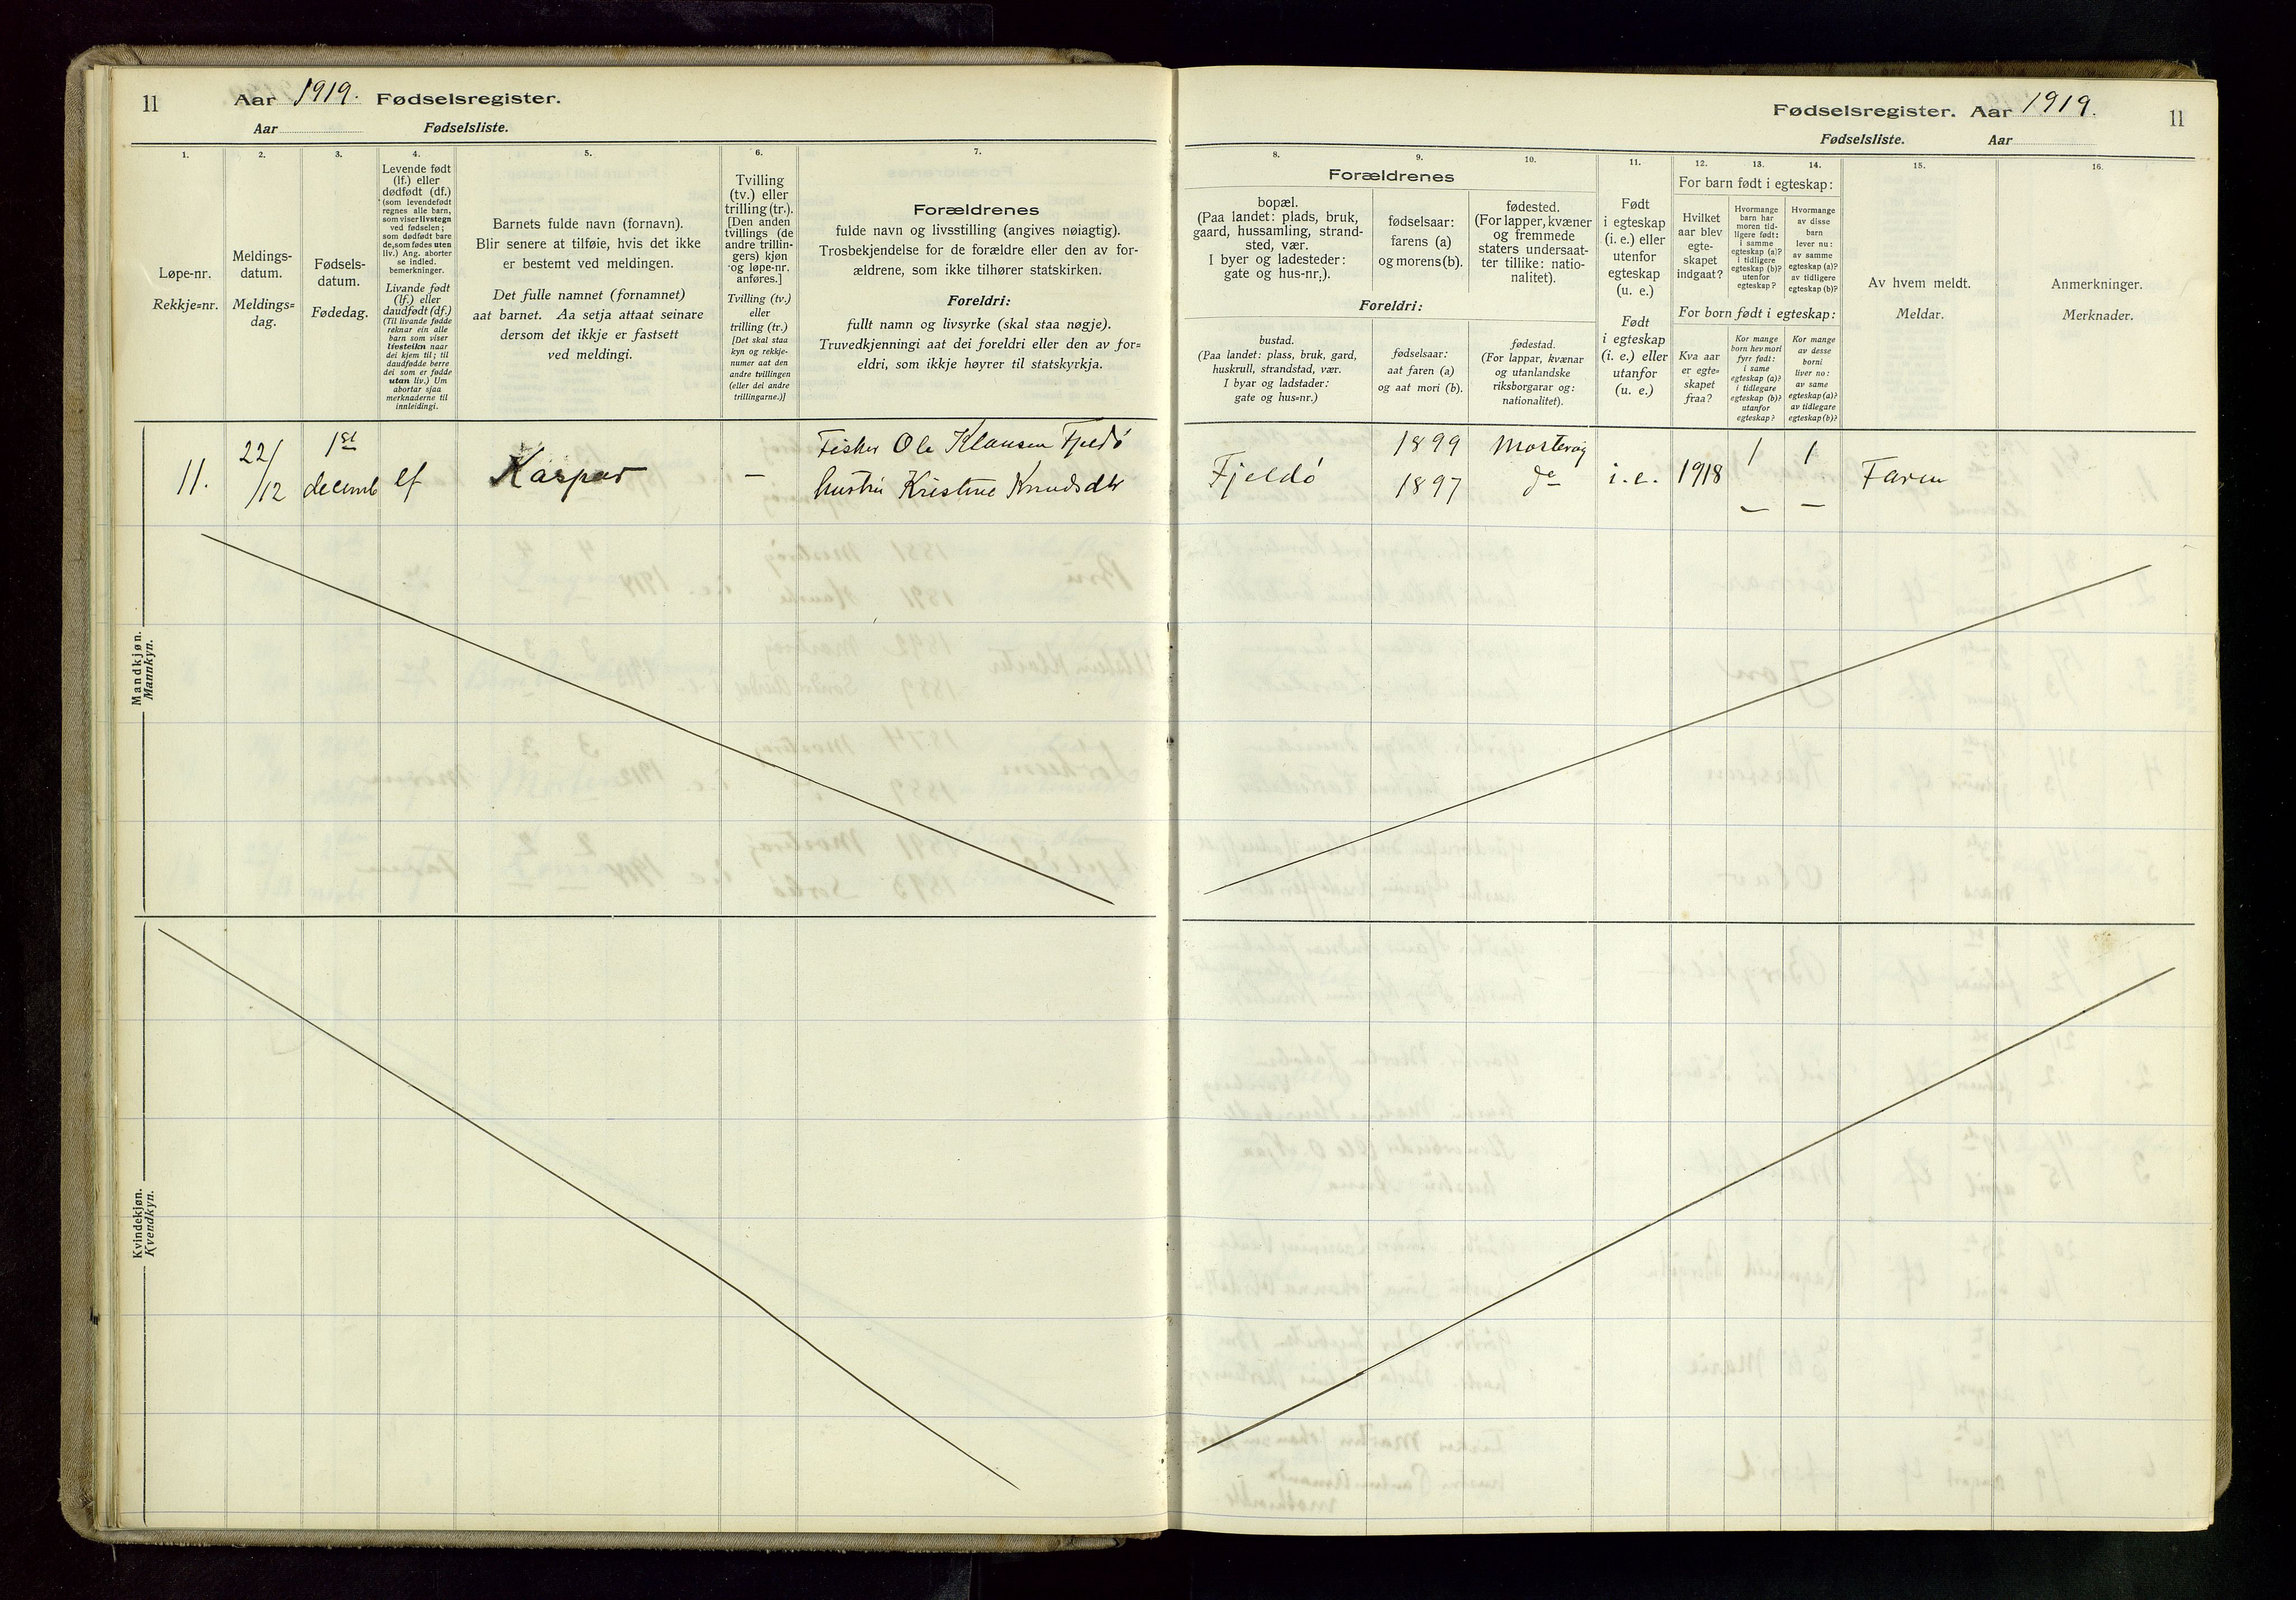 11
Aar 1919. Fødselsregister.
Aar Fødselsliste.
1.
Løpe-nr.
Rekkje=nr.
2.
Meldings-
datum.
Meldings=
dag.
3.
Fødsels-
datum.
Fødedag.
4.
Levende født
(lf.) eller
dødfødt (df.)
(som levendefødt
regnes alle barn,
som viser livstegn
ved fødselen;
som dødfødt bare
de, som fødes uten
liv.) Ang. aborter
se indled.
bemerkninger.
Livande født
(lf.) eller
daudfødt (df.)
(Til livande fødde
reknar ein alle
barn som viser
livsteikn naar
dei kjem til; til
daudfødde berre
dei som er fødde
utan liv.) Um
abortar sjaa
merknaderne til
innleidingi.
5.
Barnets fulde navn (fornavn).
Blir senere at tilføie, hvis det ikke
er bestemt ved meldingen.
Det fulle namnet (fornamnet)
aat barnet. Aa setja attaat seinare
dersom det ikkje er fastsett
ved meldingi.
6.
Tvilling
(tv.) eller
trilling (tr.).
[Den anden
tvillings (de
andre trillin-
gers) kjøn
og løpe-nr.
anføres.]
Tvilling (tv.)
eller
trilling (tr.)
[Det skal staa
kyn og rekkje-
numer aat den
andre tvillingen
(eller dei andre
trillingarne.)]
7.
Forældrenes
fulde navn og livsstilling (angives nøiagtig).
Trosbekjendelse for de forældre eller den av for-
ældrene, som ikke tilhører statskirken.
Foreldri:
fullt namn og livsyrke (skal staa nøgje).
Truvedkjenningi aat dei foreldri eller den av for=
eldri, som ikkje høyrer til statskyrkja.
Mandkjøn.
Mannkyn.
11.
22/
/12
1st
decemb
lf
Kaspar
—
Fisker Ole Klausen Fjeldø
hustru Kristine Knudsdtr
Kvindekjøn.
Kvendkyn.
Fødselsregister. Aar 1919.
11
Fødselsliste. Aar
8.
9.
10.
Forældrenes
bopæl.
(Paa landet: plads, bruk,
gaard, hussamling, strand-
sted, vær.
I byer og ladesteder:
gate og hus-nr.).
fødselsaar:
farens (a)
og morens (b).
fødested.
(For lapper, kvæner
og fremmede
staters undersaat-
ter tillike: natio-
nalitet).
Foreldri:
bustad.
(Paa landet: plass, bruk, gard,
huskrull, strandstad, vær.
I byar og ladstader:
gate og hus=nr.)
fødselsaar:
aat faren (a)
og aat mori (b).
fødestad.
(For lappar, kvænar
og utanlandske
riksborgarar og:
nationalitet).
11.
Født
i egteskap
(i. e.) eller
utenfor
egteskap
(u. e.)
Født
i egteskap
(i. e.) eller
utanfor
(u. e.)
12.
13.
14.
For barn født i egteskap:
Hvilket
aar blev
egte-
skapet
indgaat?
Hvormange
barn har
moren tid-
ligere født:
i samme
egteskap (a)?
i tidligere
egteskap (b)?
utenfor
egteskap?
Hvormange
av disse
barn
lever nu:
av samme
egteskap (a)?
av tidligere
egteskap (b)?
For born født i egteskap:
Kva aar
er egte=
skapet
fraa?
Kor mange
born hev mori
fyrr født:
i same
egteskap (a)?
i tidlegare
egteskap (b)?
utanfor
egteskap?
Kor mange
av desse
borni
liver no:
av same
egteskap (a)?
av tidlegare
egteskap (b)?
15.
Av hvem meldt.
Meldar.
16.
Anmerkninger.
Merknader.
Fjeldø
1899
1897
Mosterøy
do
i. e.
1918
1
—
1
—
Faren